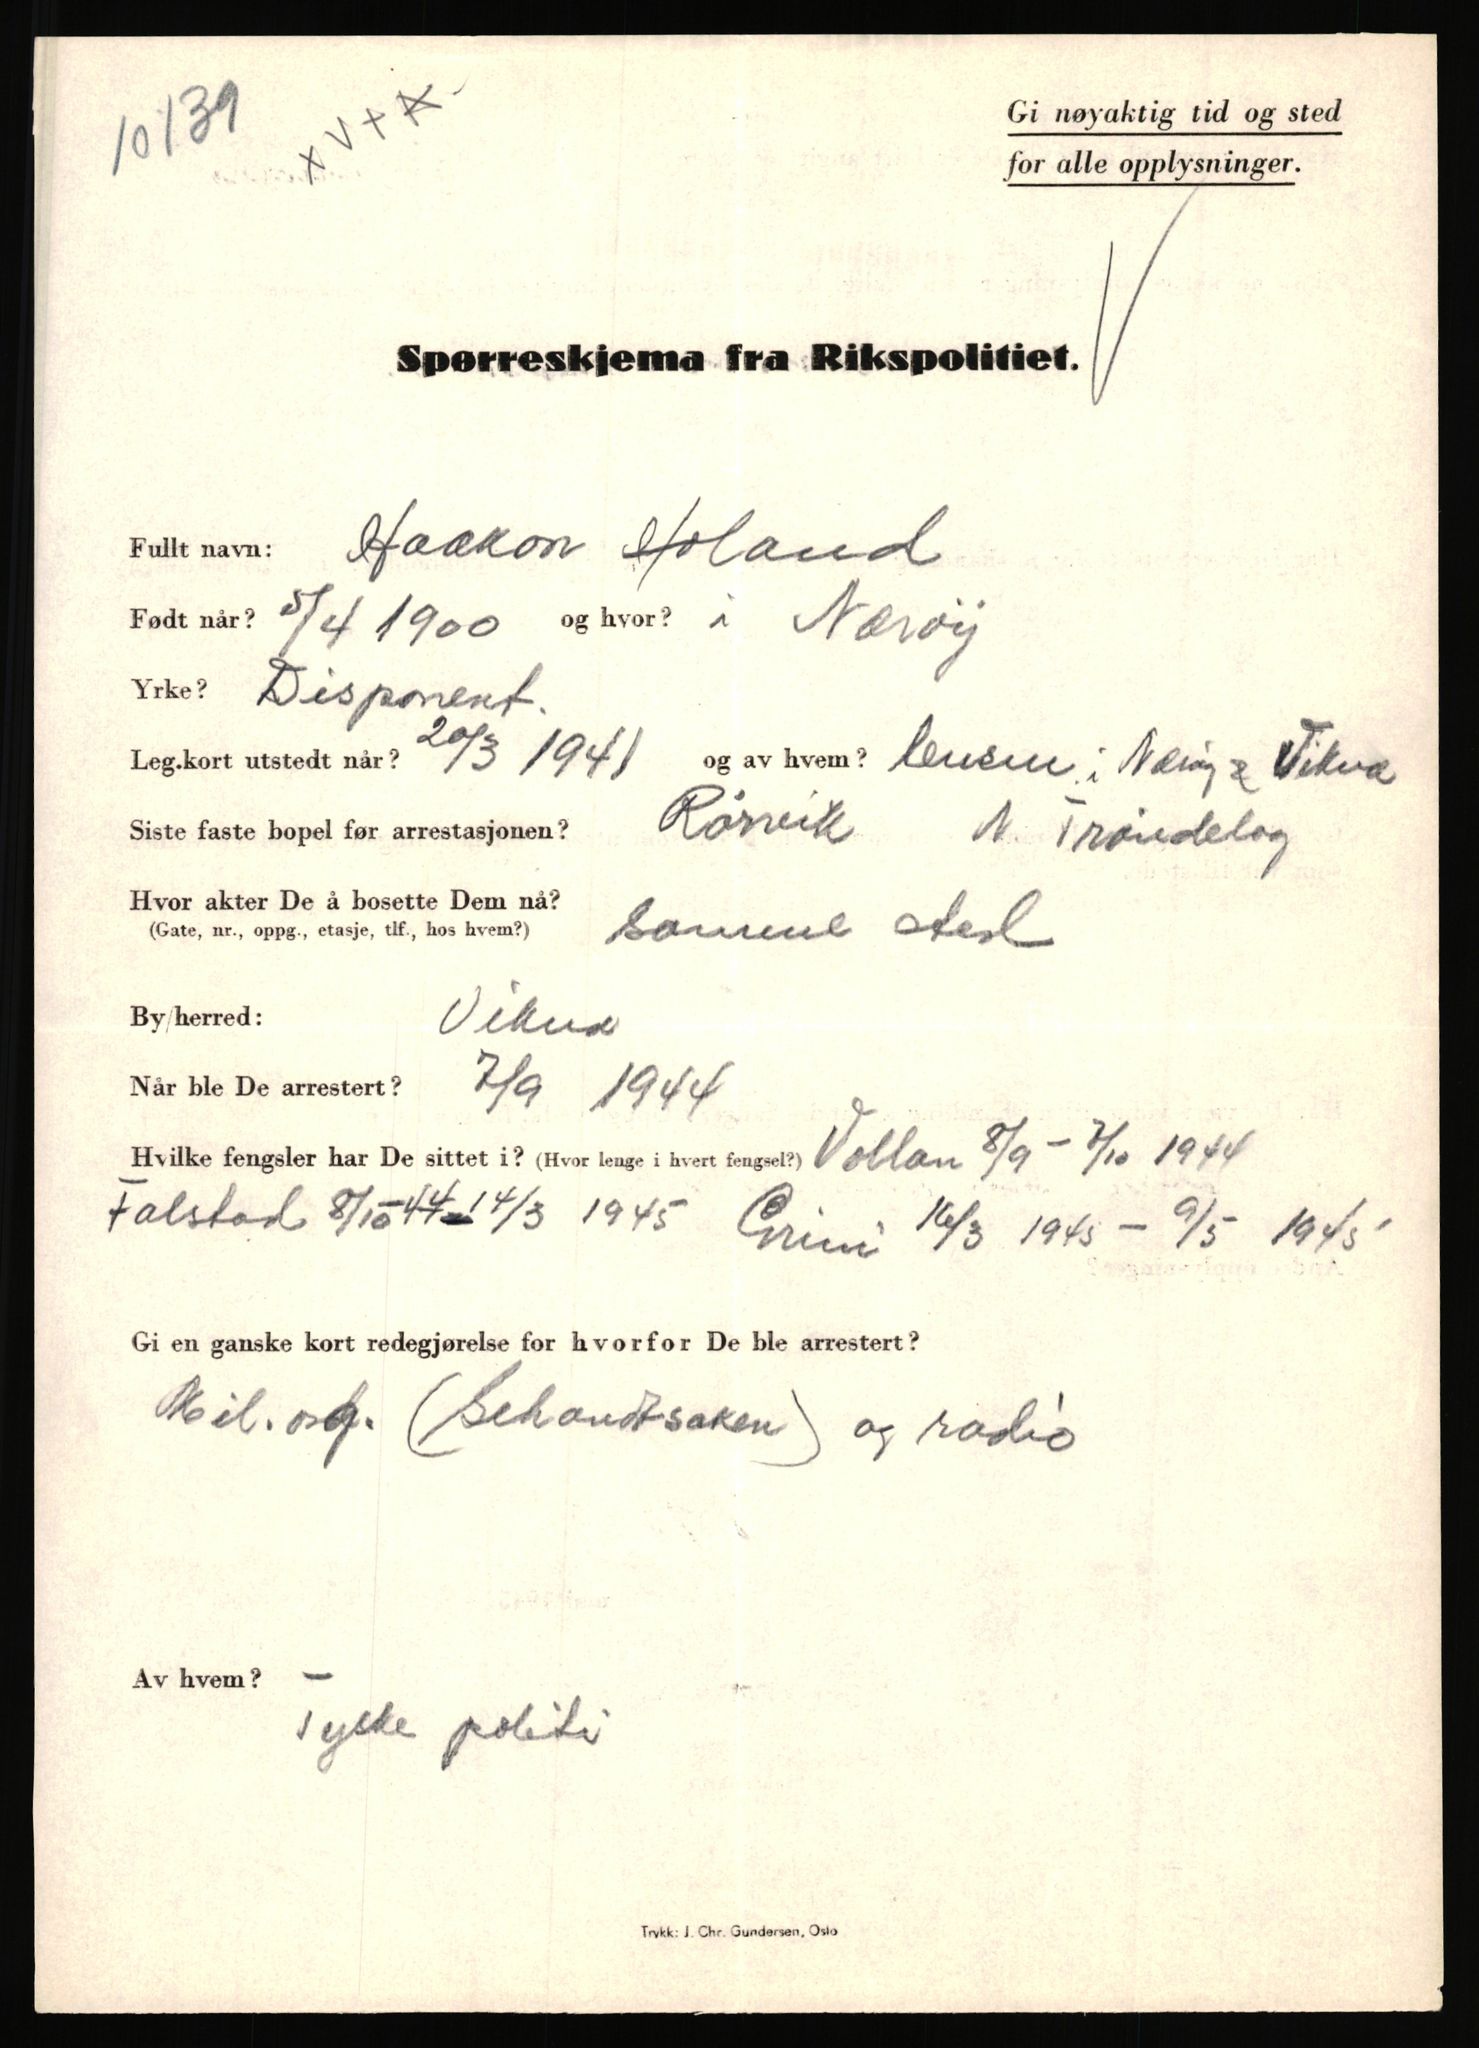 10139
x v + x -
Gi nøyaktig tid og sted
for alle opplysninger.
V
Spørreskjema fra Rikspolitiet.
Fullt navn: Haakon Holand
Født når? 5/4 1900 og hvor? i Nærøy
Yrke? Disponent.
Leg.kort utstedt når? 20/3 1941 og av hvem? lensm. i Nærøy & Vikna
Siste faste bopel før arrestasjonen? Rörvik N. Tröndelag
Hvor akter De å bosette Dem nå? samme sted
(Gate, nr., oppg., etasje, tlf., hos hvem?)
By/herred: Vikna
Når ble De arrestert? 7/9 1944
Hvilke fengsler har De sittet i? (Hvor lenge i hvert fengsel?) Vollan 8/9 - 7/10 1944
Falstad 8/10 44 - 14/3 1945 Grini 16/3 1945 - 9/5 1945
Gi en ganske kort redegjørelse for hvorfor De ble arrestert?
Mil. org. (Schandtsaken) og radio
Av hvem?
Tyske politi
Trykk: J. Chr. Gundersen, Oslo